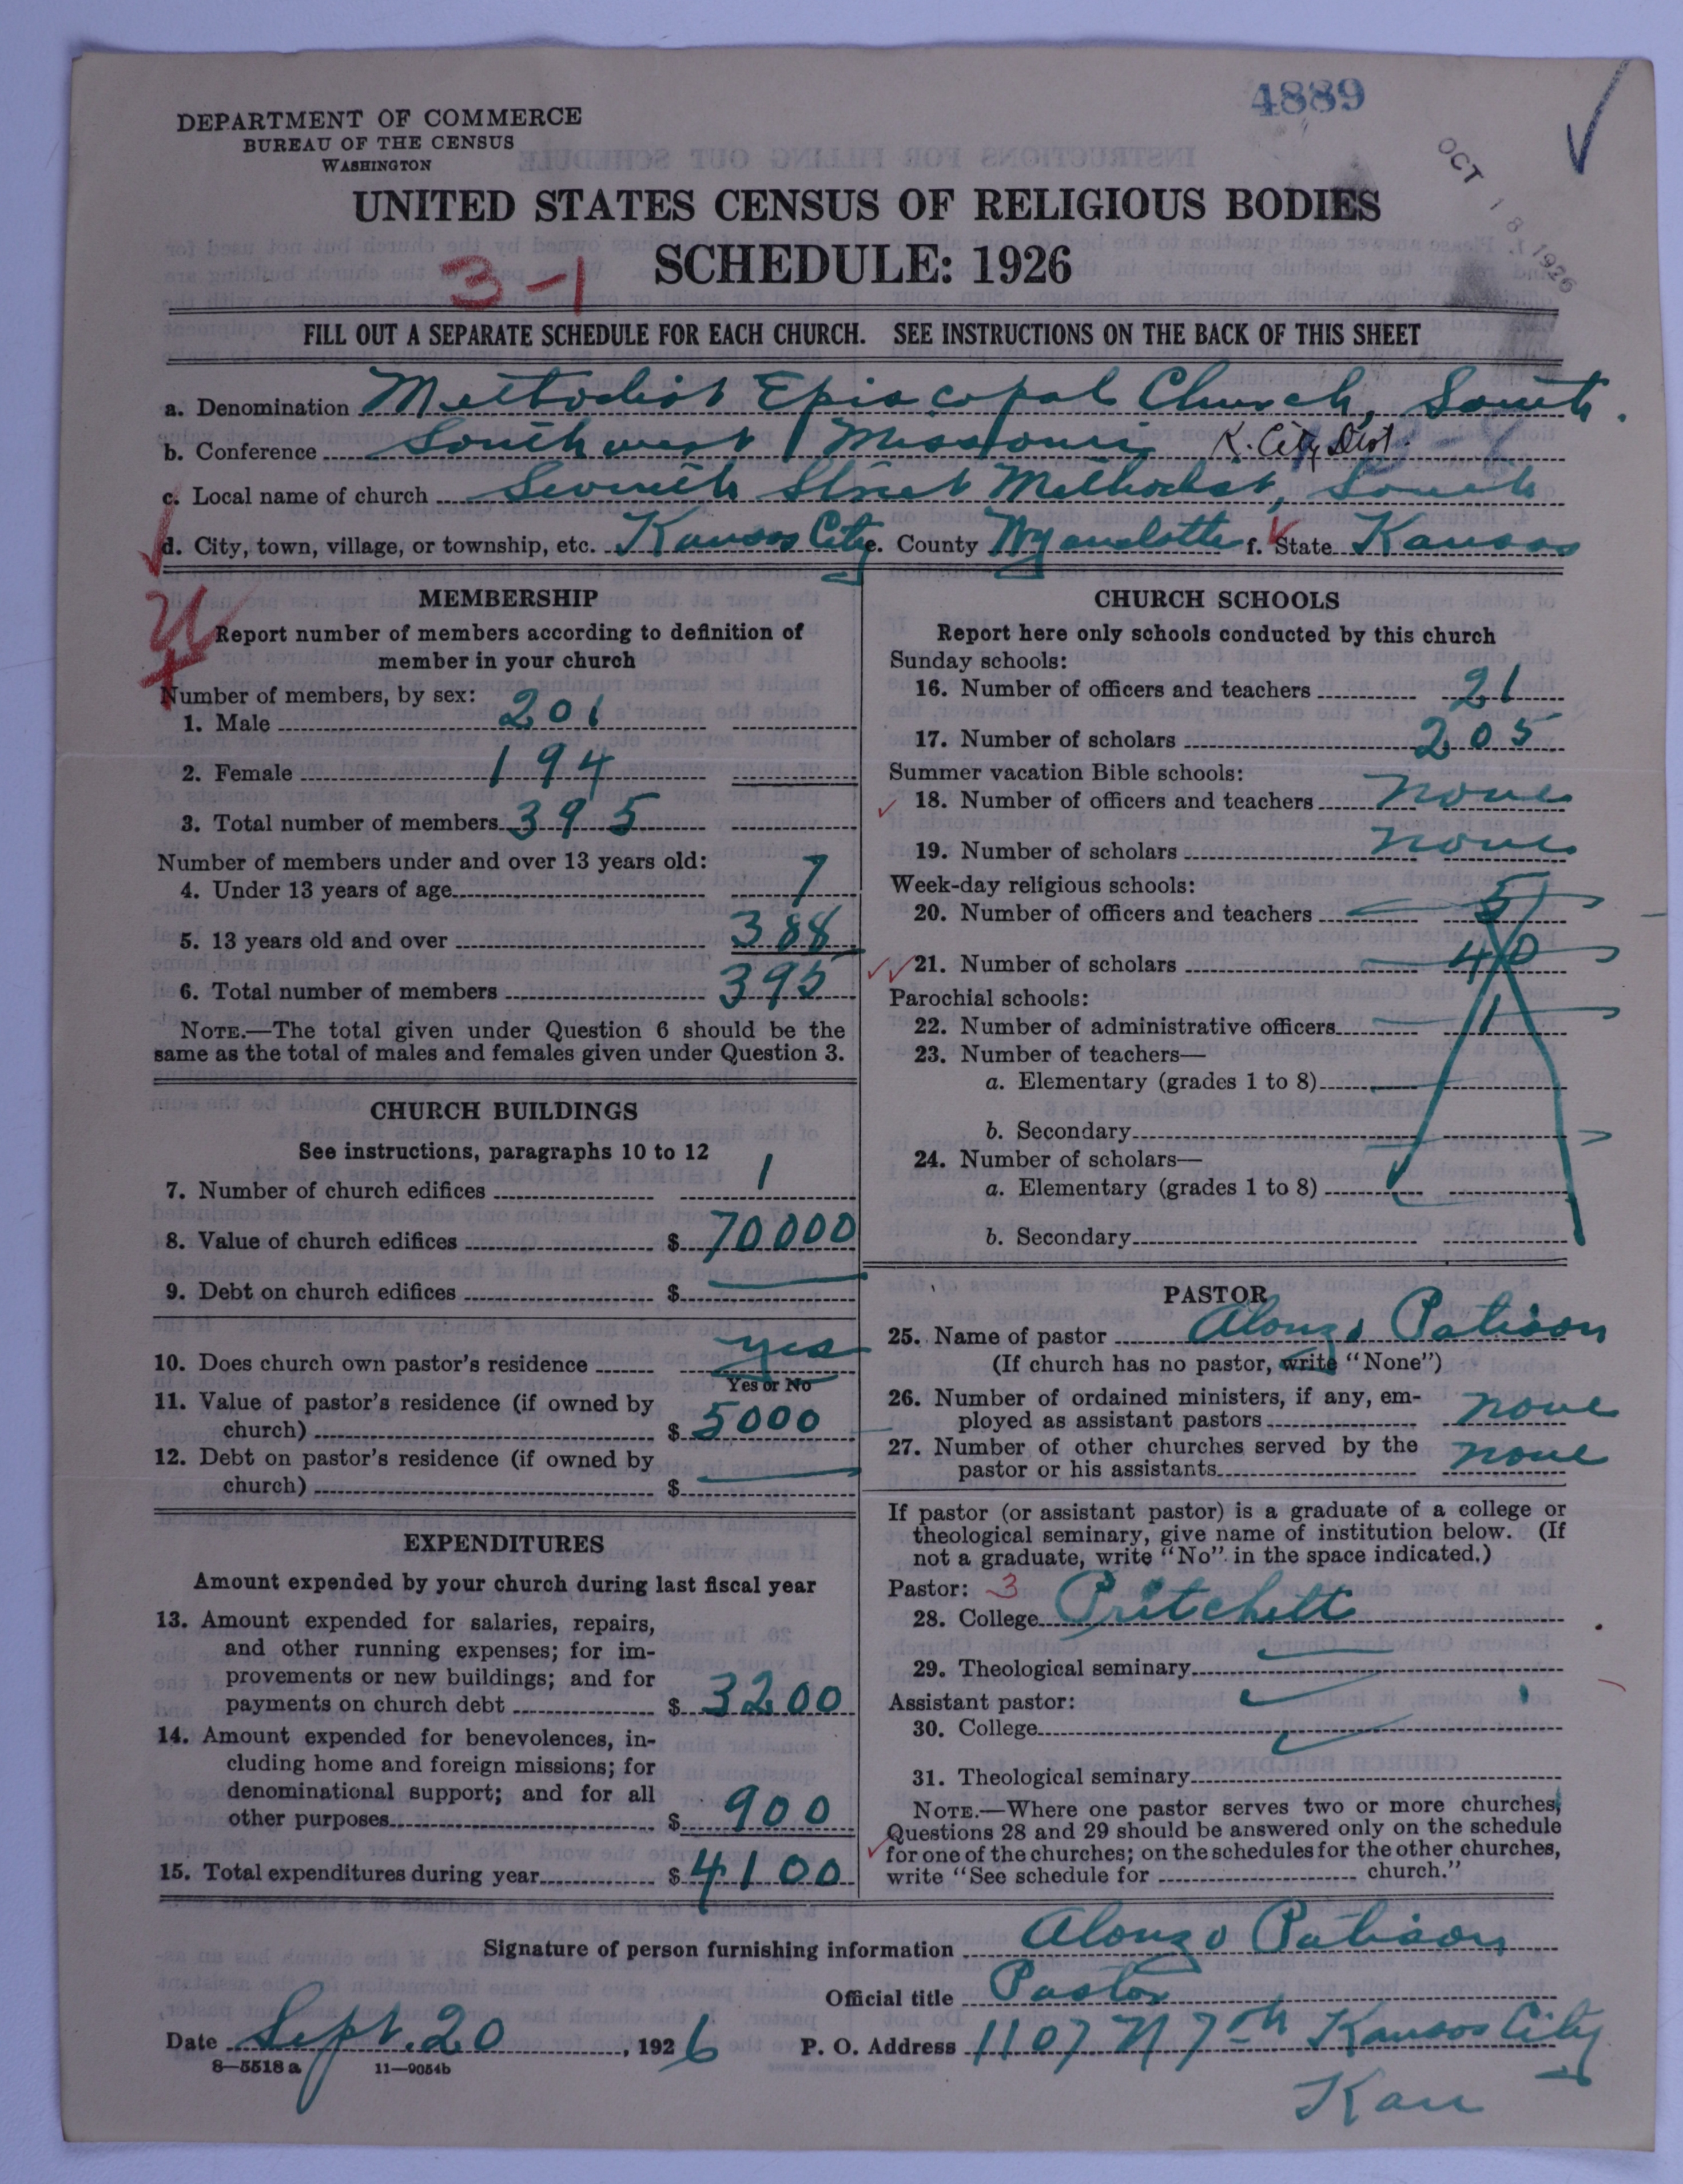 4889
OCT 18 1926
DEPARTMENT OF COMMERCE
BUREAU OF THE CENSUS
WASHINGTON
UNITED STATES CENSUS OF RELIGIOUS BODIES
SCHEDULE: 1926
3-1
FILL OUT A SEPARATE SCHEDULE FOR EACH CHURCH. SEE INSTRUCTIONS ON THE BACK OF THIS SHEET
a. Denomination Methodist Episcopal Church, South.
b. Conference Southwest Missouri K. City Dist.
c. Local name of church Seventh Street Methodist, South
d. City, town, village, or township, etc. Kansas City e. County Wyandotte f. State Kansas
MEMBERSHIP
Report number of members according to definition of
member in your church
Number of members, by sex:
1. Male 201
2. Female 194
3. Total number of members 395
Number of members under and over 13 years old:
4. Under 13 years of age 7
5. 13 years old and over 388
6. Total number of members 395
NOTE.—The total given under Question 6 should be the
same as the total of males and females given under Question 3.
CHURCH BUILDINGS
See instructions, paragraphs 10 to 12
7. Number of church edifices 1
8. Value of church edifices $ 70000
9. Debt on church edifices $
10. Does church own pastor's residence yes
Yes or No
11. Value of pastor's residence (if owned by
church) $ 5000
12. Debt on pastor's residence (if owned by
church) $
EXPENDITURES
Amount expended by your church during last fiscal year
13. Amount expended for salaries, repairs,
and other running expenses; for im-
provements or new buildings; and for
payments on church debt $ 3200
14. Amount expended for benevolences, in-
cluding home and foreign missions; for
denominational support; and for all
other purposes $ 900
15. Total expenditures during year $ 4100
CHURCH SCHOOLS
Report here only schools conducted by this church
Sunday schools:
16. Number of officers and teachers 21
17. Number of scholars 205
Summer vacation Bible schools:
18. Number of officers and teachers none
19. Number of scholars none
Week-day religious schools:
20. Number of officers and teachers 5
21. Number of scholars 40
Parochial schools:
22. Number of administrative officers 1
23. Number of teachers—
a. Elementary (grades 1 to 8)
b. Secondary
24. Number of scholars—
a. Elementary (grades 1 to 8)
b. Secondary
PASTOR
25. Name of pastor Alonzo Patison
(If church has no pastor, write "None")
26. Number of ordained ministers, if any, em-
ployed as assistant pastors none
27. Number of other churches served by the
pastor or his assistants none
If pastor (or assistant pastor) is a graduate of a college or
theological seminary, give name of institution below. (If
not a graduate, write "No" in the space indicated.)
Pastor: 3
28. College Pritchett
29. Theological seminary
Assistant pastor:
30. College
31. Theological seminary
NOTE.—Where one pastor serves two or more churches,
Questions 28 and 29 should be answered only on the schedule
for one of the churches; on the schedules for the other churches,
write "See schedule for church."
Signature of person furnishing information Alonzo Patison
Official title Pastor
Date Sept. 20, 1926 P. O. Address 1107 N 7th Kansas City
Kan
8—5518 a 11—9054b